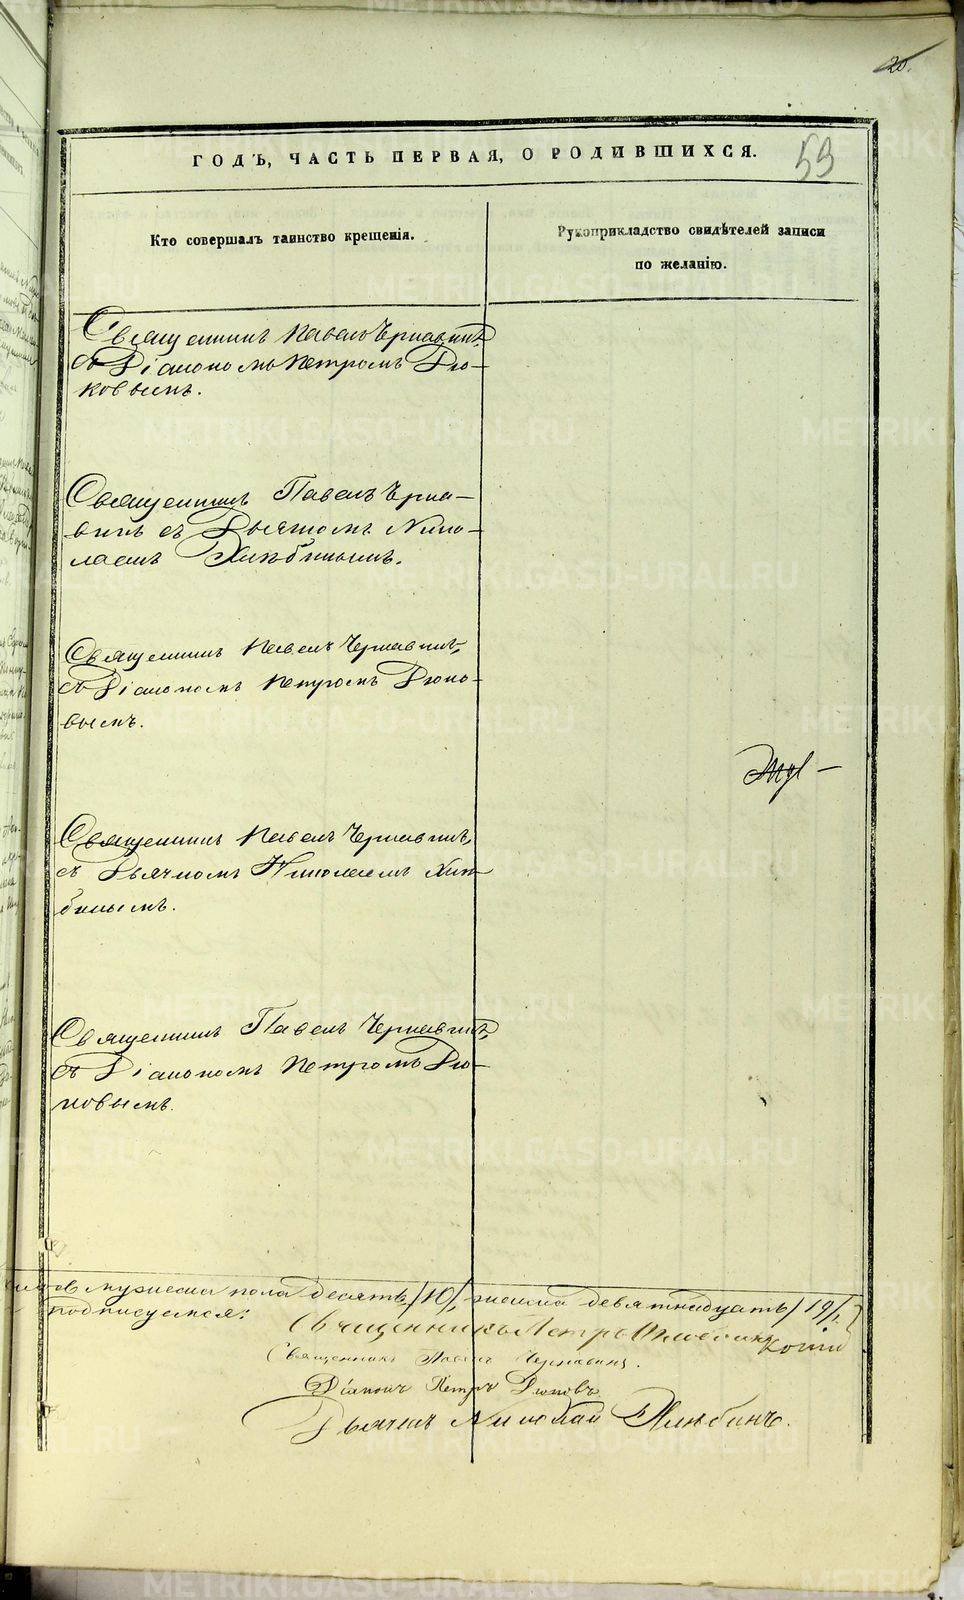 20.
ГОДЪ, ЧАСТЬ ПЕРВАЯ, О РОДИВШИХСЯ.
59
Кто совершалъ таинство крещенія.
Рукоприкладство свидѣтелей записи
по желанію.
Священникъ Павелъ Чернавинъ,
съ Діакономъ Петромъ Дю-
ковымъ.
Священникъ Павелъ Черна-
винъ съ Дьячкомъ Нико-
лаемъ Хлѣбинымъ.
Священникъ Павелъ Чернавинъ,
съ Діакономъ Петромъ Дюко-
вымъ.
Священникъ Павелъ Чернавинъ,
съ Дьячкомъ Николаемъ Хлѣ-
бинымъ.
Священникъ Павелъ Чернавинъ,
съ Діакономъ Петромъ Дю-
ковымъ.
мужеска пола десять /10/, женска девятнадцать /19/,
подписуемся:
Священникъ Петръ
Священникъ Павелъ Чернавинъ.
Діаконъ Петръ Дюковъ
Дьячекъ Николай Хлѣбинъ.
METRIKI.GASO-URAL.RU